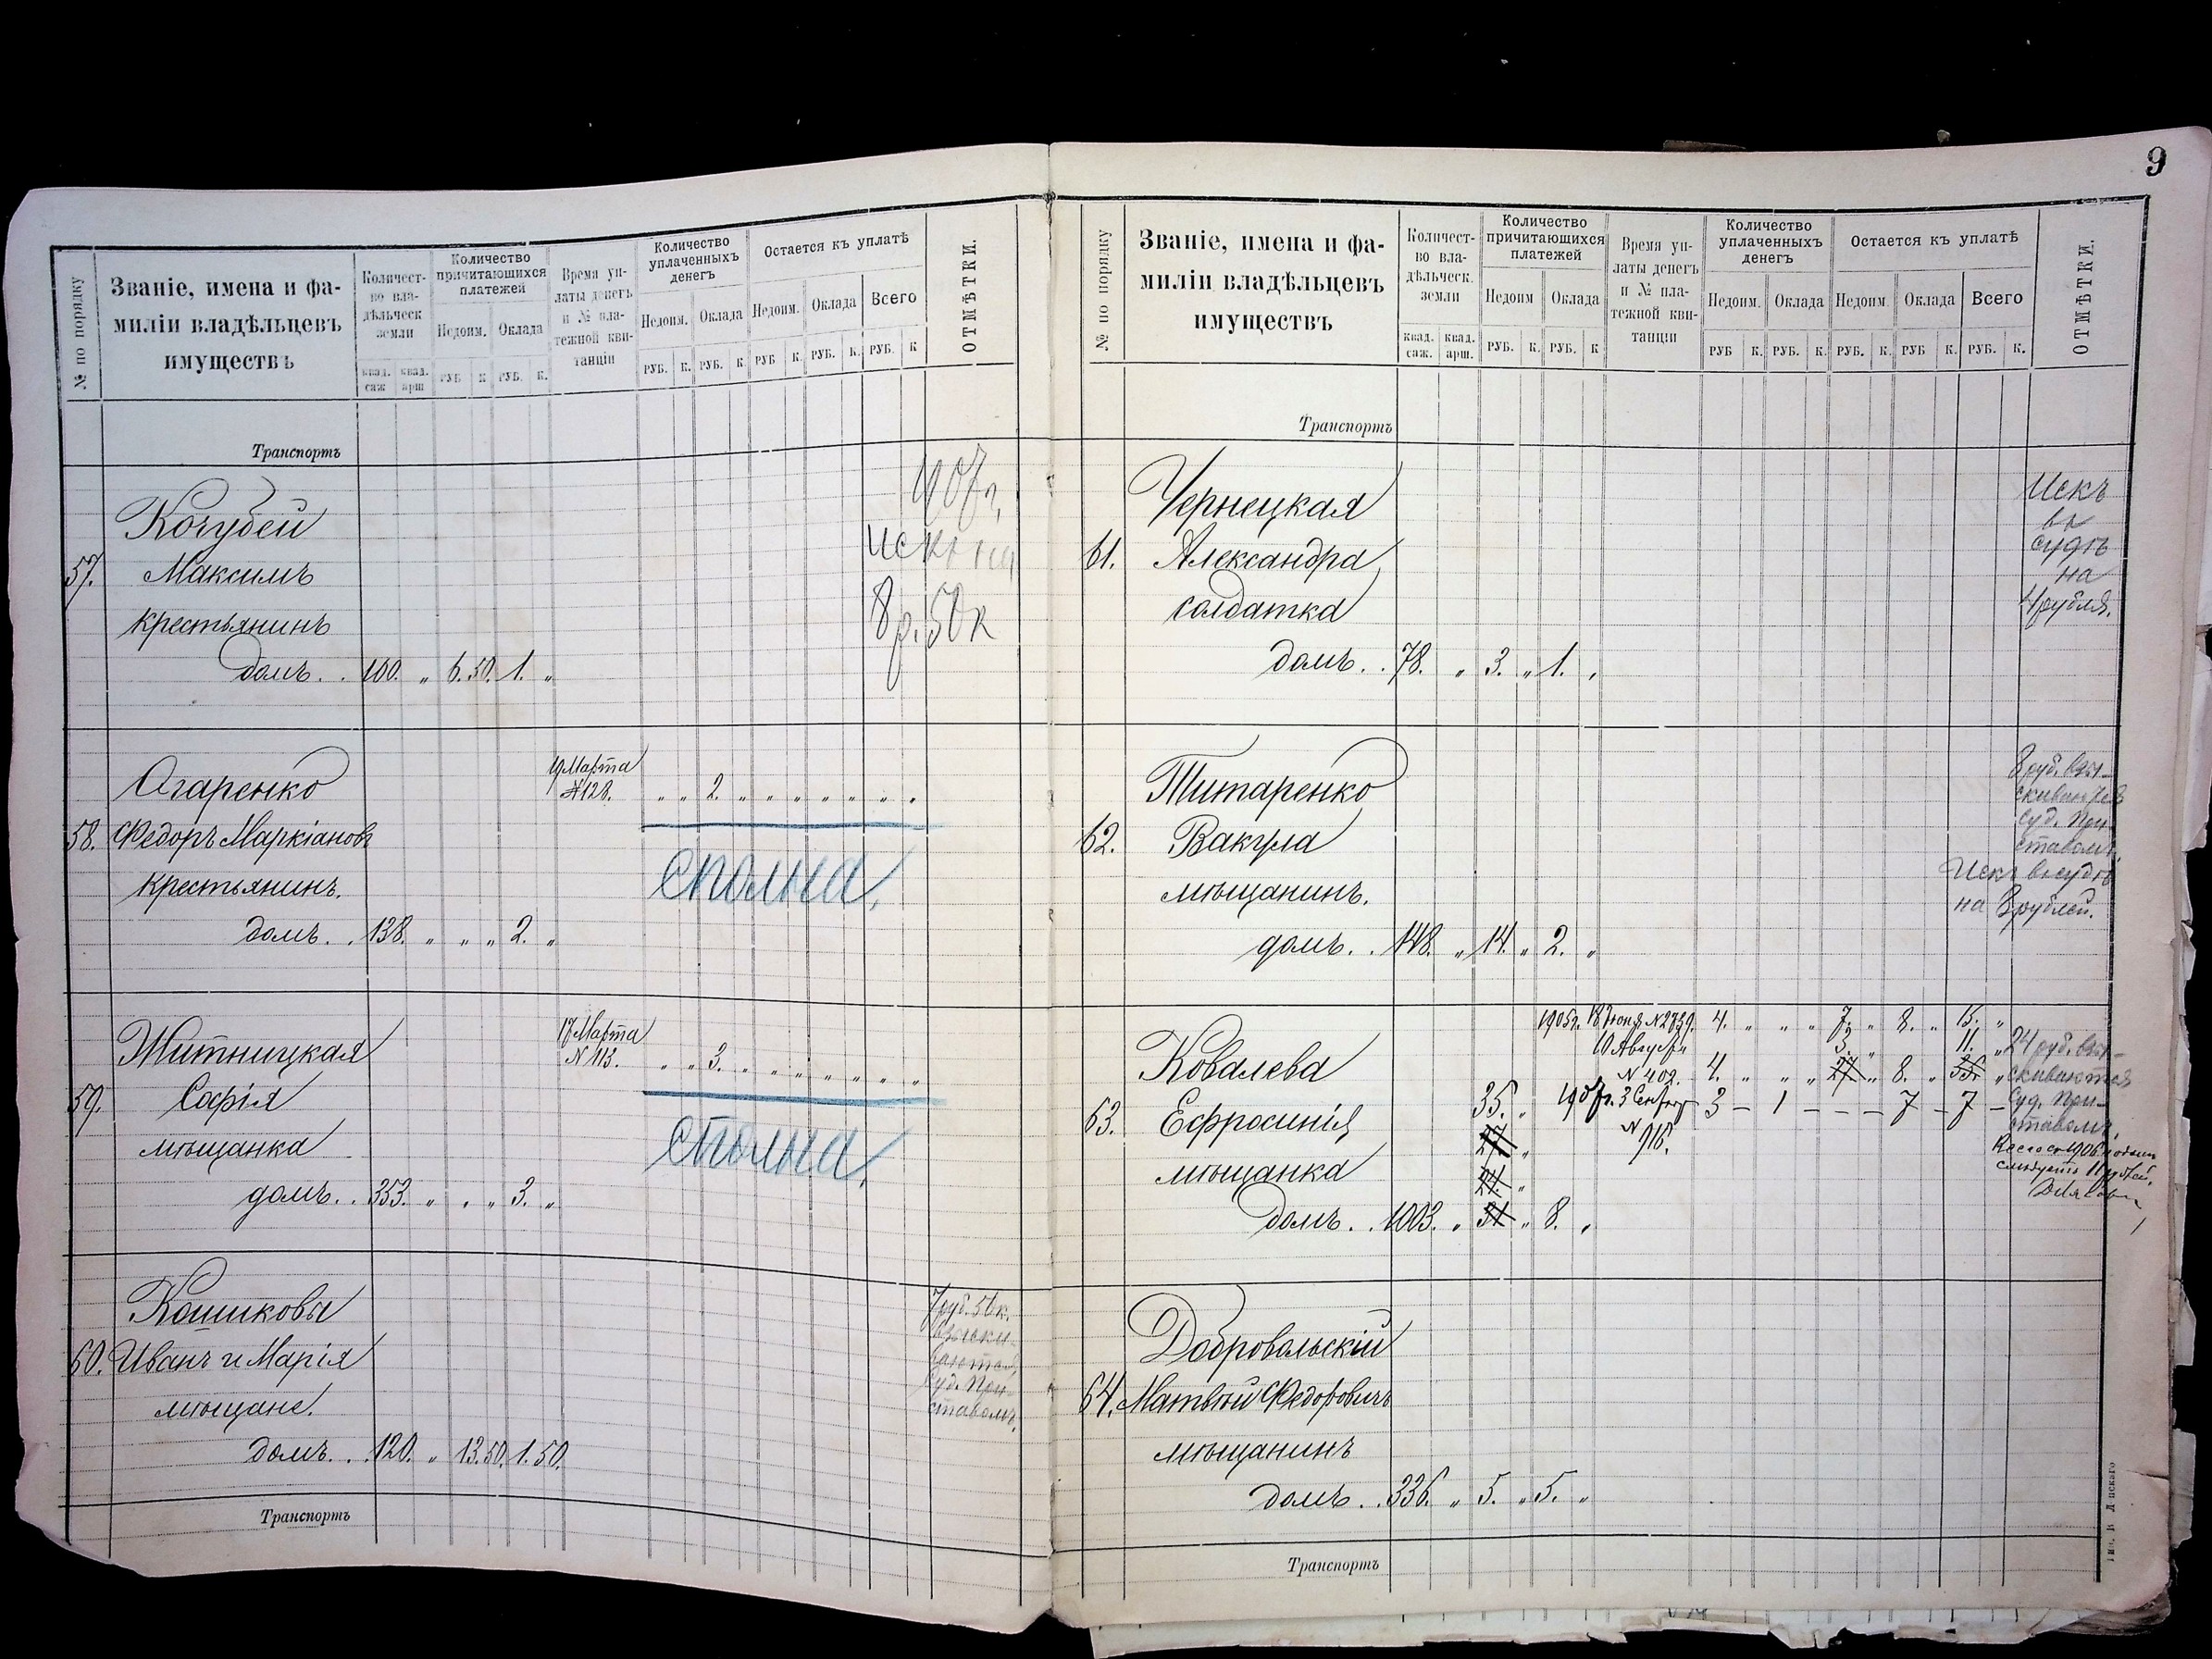 № по порядку
Званіе, имена и фа-
миліи владѣльцевъ
имуществъ
Количест-
во вла-
дѣльческ
земли
квад. саж квад. арш
Количество
причитающихся
платежей
Недоим. Оклада
РУБ К РУБ. К.
Время уп-
латы денегъ
и № пла-
тежной кви-
танціи
Количество
уплаченныхъ
денегъ
Недоим. Оклада
РУБ. К. РУБ. К
Остается къ уплатѣ
Недоим. Оклада Всего
РУБ К. РУБ. К. РУБ. К
ОТМѢТКИ.
Транспортъ
Кочубей
57. Максимъ
крестьянинъ
домъ . . 100. „ 6. 50. 1. „
1907 г.
искъ на
8 р. 50 к
Агаренко
58. Федоръ Маркіановъ
крестьянинъ.
домъ . . 138. „ „ „ 2. „
19 Марта
№ 128. „ „ 2. „ „ „ „ „ „ „
сполна.
Житницкая
59. Софія
мѣщанка
домъ . . 353. „ „ „ 3. „
17 Марта
N 113. „ „ 3. „ „ „ „ „ „ „
сполна.
Кошиковы
60. Иванъ и Марія
мѣщане.
домъ . . 120. „ 13. 50. 1. 50.
7 руб. 50 к.
взыски-
ваются
Суд. При-
ставомъ.
Транспортъ
9
№ по порядку
Званіе, имена и фа-
миліи владѣльцевъ
имуществъ
Количест-
во вла-
дѣльческ.
земли
квад. саж. квад. арш.
Количество
причитающихся
платежей
Недоим Оклада
РУБ. К. РУБ. К
Время уп-
латы денегъ
и № пла-
тежной кви-
танціи
Количество
уплаченныхъ
денегъ
Недоим. Оклада
РУБ К. РУБ. К.
Остается къ уплатѣ
Недоим. Оклада Всего
РУБ. К. РУБ К. РУБ. К.
ОТМѢТКИ.
Транспортъ
Чернецкая
61. Александра
солдатка
домъ . . 78. „ 3. „ 1. „
Искъ
въ
судѣ
на
4 рубля.
Титаренко
62. Вакула
мѣщанинъ.
домъ . . 148. „ 14. „ 2. „
8 руб. взы-
скиваются
суд. При-
ставомъ.
Искъ въ судѣ
на 8 рублей.
Ковалева
63. Ефросинія
мѣщанка
35. „
27. „
21. „
домъ . . 1003. „ 31 „ 8. „
1905 г. 18 Іюня N 2739. 4. „ „ „ 7. „ 8. „ 15. „
3. „ 11. „
10 Августа
N 402. 4. „ „ „ 27. „ 8. „ 35. „
1907 г. 3 Сентяб 3 – 1 – – – 7 – 7 –
N 916.
24 руб. взы-
скиваются
Суд. При-
ставомъ.
Добровольскій
64. Матвѣй Федоровичъ
мѣщанинъ
домъ . . 336. „ 5. „ 5. „
Транспортъ